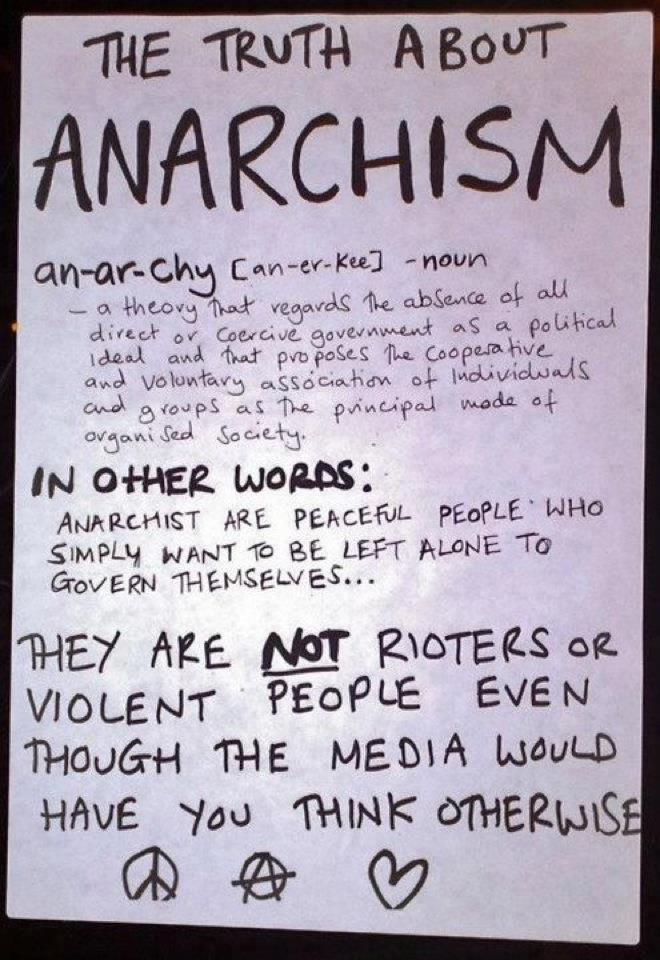 THE TRUTH ABOUT
ANARCHISM
an-ar-chy [an-er-kee] -noun
- a theory that regards the absence of all
direct or coercive government as a political
ideal and that proposes the cooperative
and voluntary association of Individuals
and groups as the principal mode of
organised society.
IN OTHER WORDS:
ANARCHIST ARE PEACEFUL PEOPLE WHO
SIMPLY WANT TO BE LEFT ALONE TO
GOVERN THEMSELVES...
THEY ARE NOT RIOTERS OR
VIOLENT PEOPLE EVEN
THOUGH THE MEDIA WOULD
HAVE YOU THINK OTHERWISE